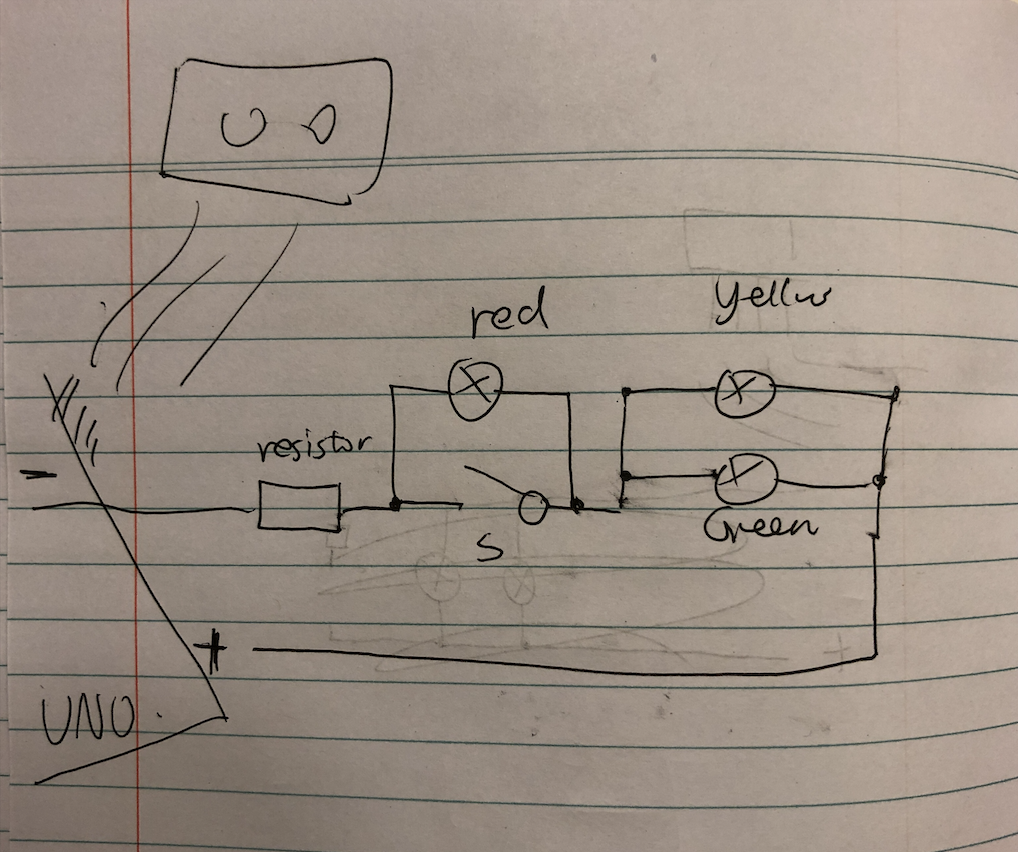 red
Yellw
resistor
-
S
Green
+
UNO